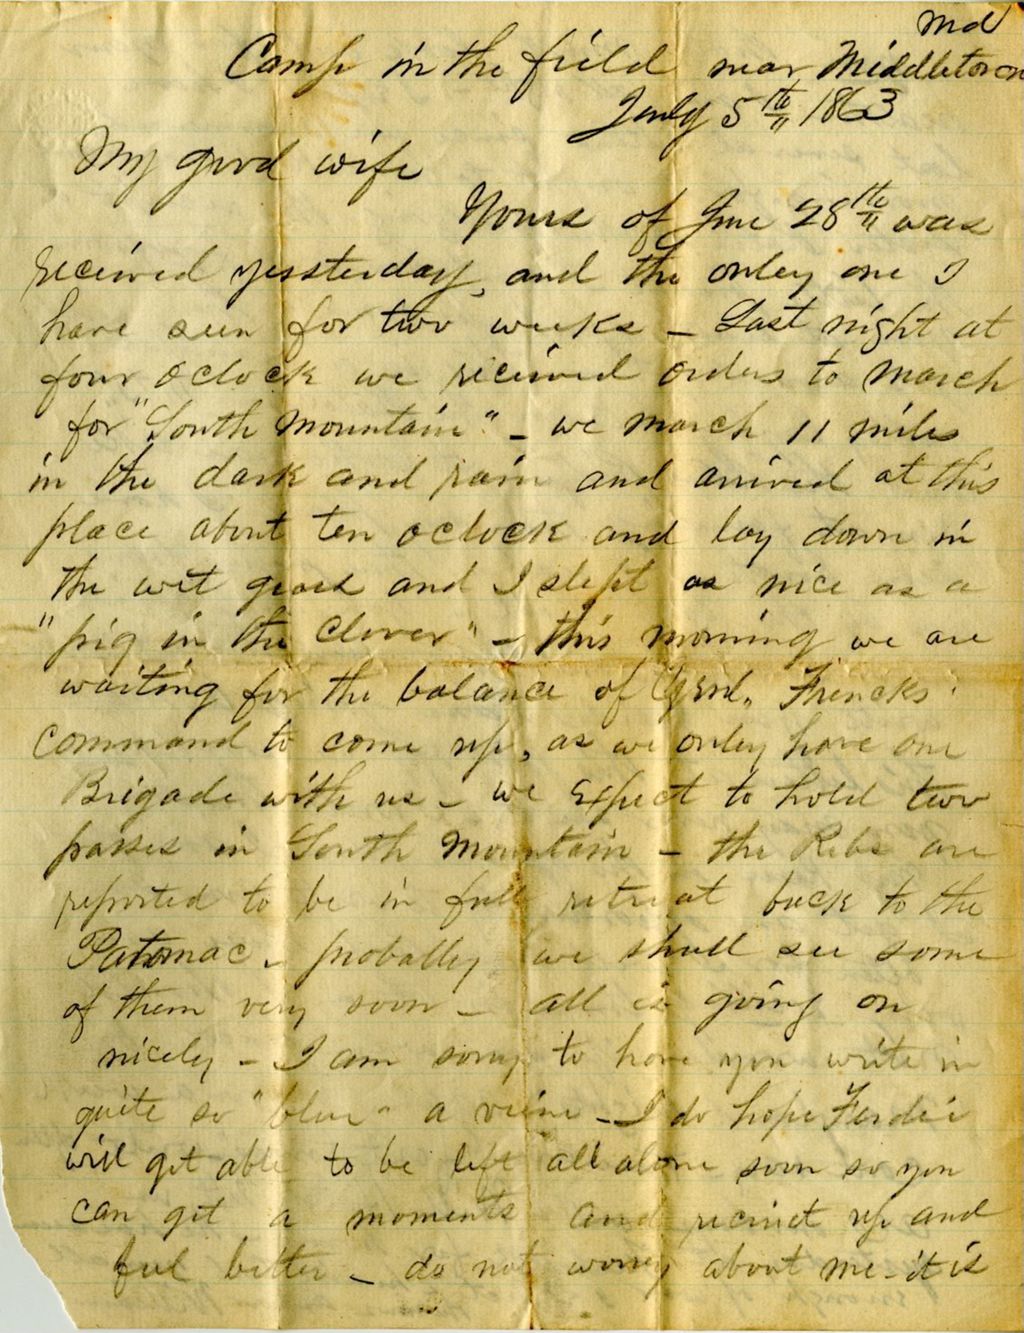 Md
Camp in the field near Middletown
July 5th 1863
My good wife
Yours of June 28th was
received yessterday, and the onley one I
have seen for two weeks - Last night at
four oclock we received orders to march
for "South Mountain" - we march 11 miles
in the dark and rain and arrived at this
place about ten oclock and lay down in
the wet grass and I slept as nice as a
"pig in the clover" - this morning we are
waiting for the balance of Genl. Frencks
command to come up, as we onley have one
Brigade with us - we expect to hold two
passes in South Mountain - the Rebs are
reported to be in full retreat back to the
Patomac - probally we shall see some
of them very soon - all is going on
nicely - I am sorry to have you write in
quite so "blue" a veine - I do hope Ferdie
will get able to be left all alone soon so you
can get a moments and recruit up and
feel better - do not worry about me - it is